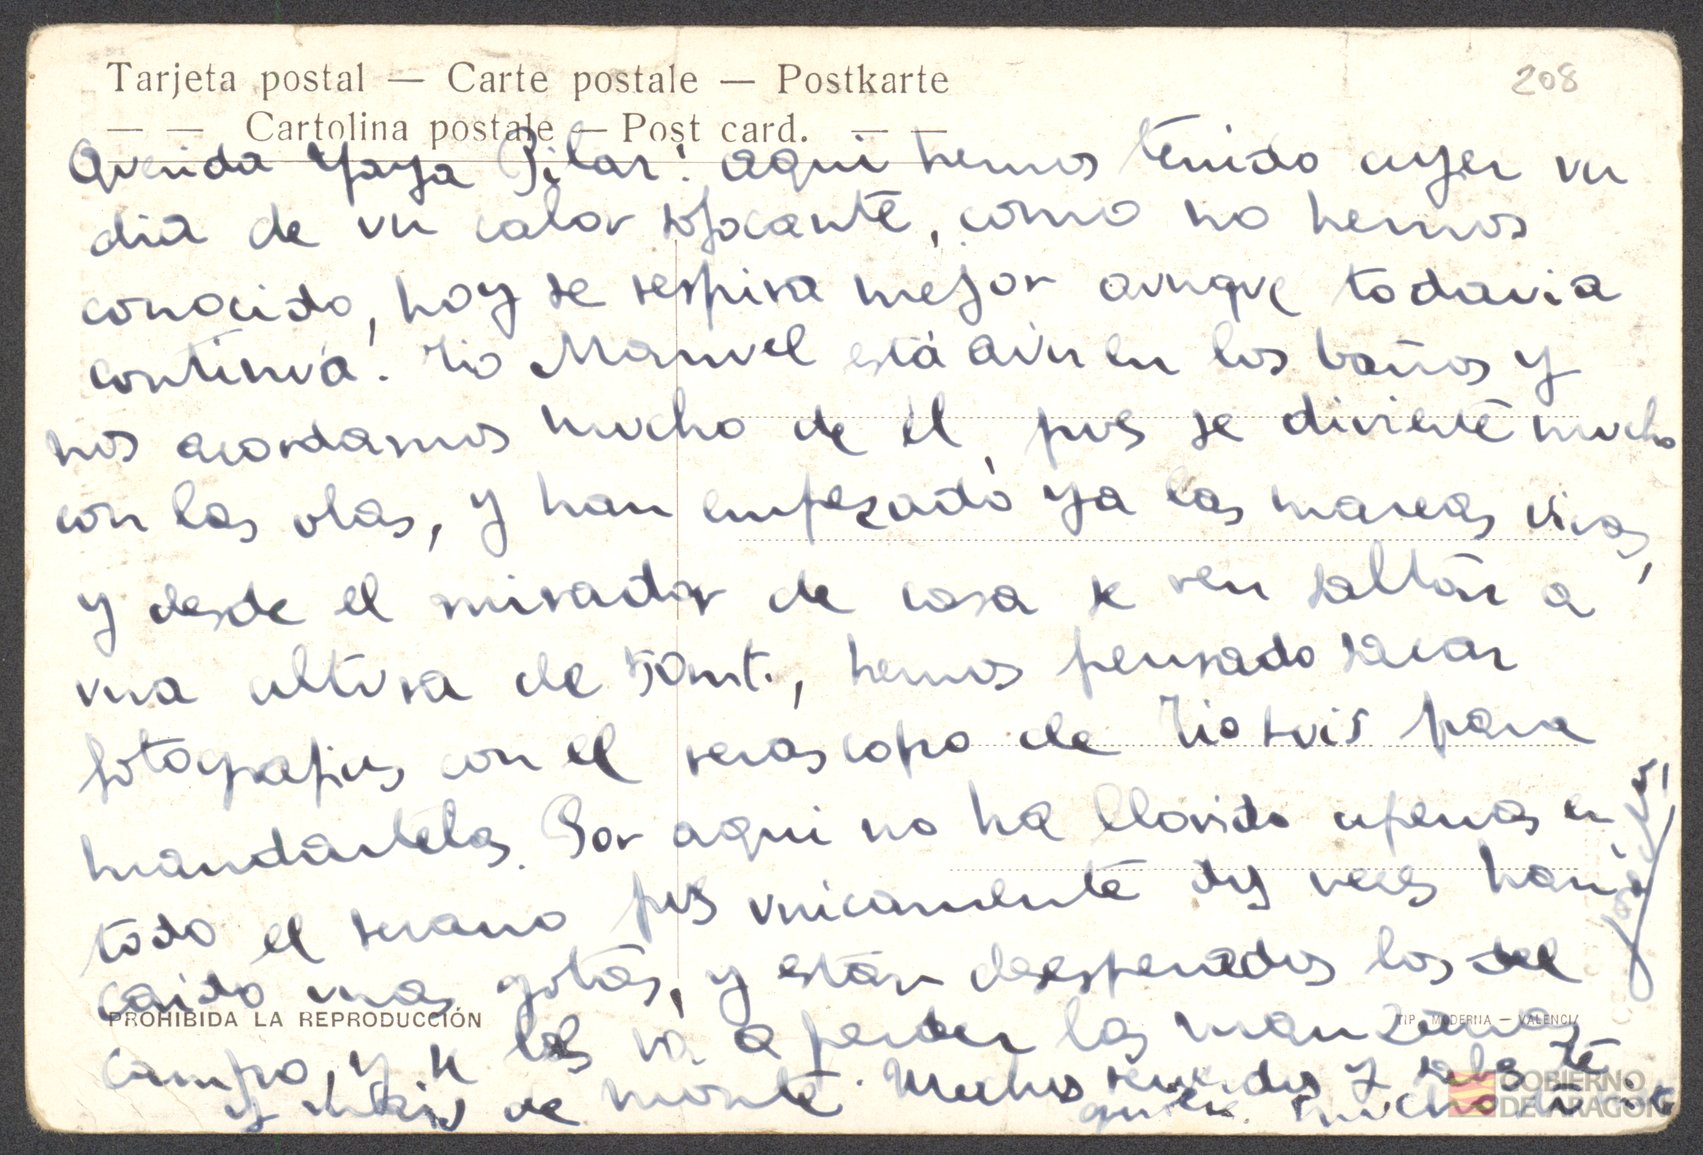 Tarjeta postal — Carte postale — Postkarte
— — Cartolina postale — Post card. — —
208
Querida Yaya Pilar: aqui hemos tenido ayer un
dia de un calor sofocante, como no hemos
conocido, hoy se respira mejor aunque todavia
continúa. Tio Manuel está aún en los baños y
nos acordamos mucho de él, pues se divierte mucho
con las olas, y han empezado ya las mareas vivas,
y desde el mirador de casa se ven saltar a
una altura de 50mt., hemos pensado sacar
fotografias con el verascopo de Tio Luis para
mandartelas. Por aqui no ha llovido apenas en
todo el verano pues unicamente dos veces han
caido unas gotas, y están desesperados los del
campo, y se les vá a perder las manzanas
y de monte. Muchos y sabes te
quiere mucho
PROHIBIDA LA REPRODUCCIÓN
TIP. MODERNA — VALENCIA
GOBIERNO
DE ARAGON